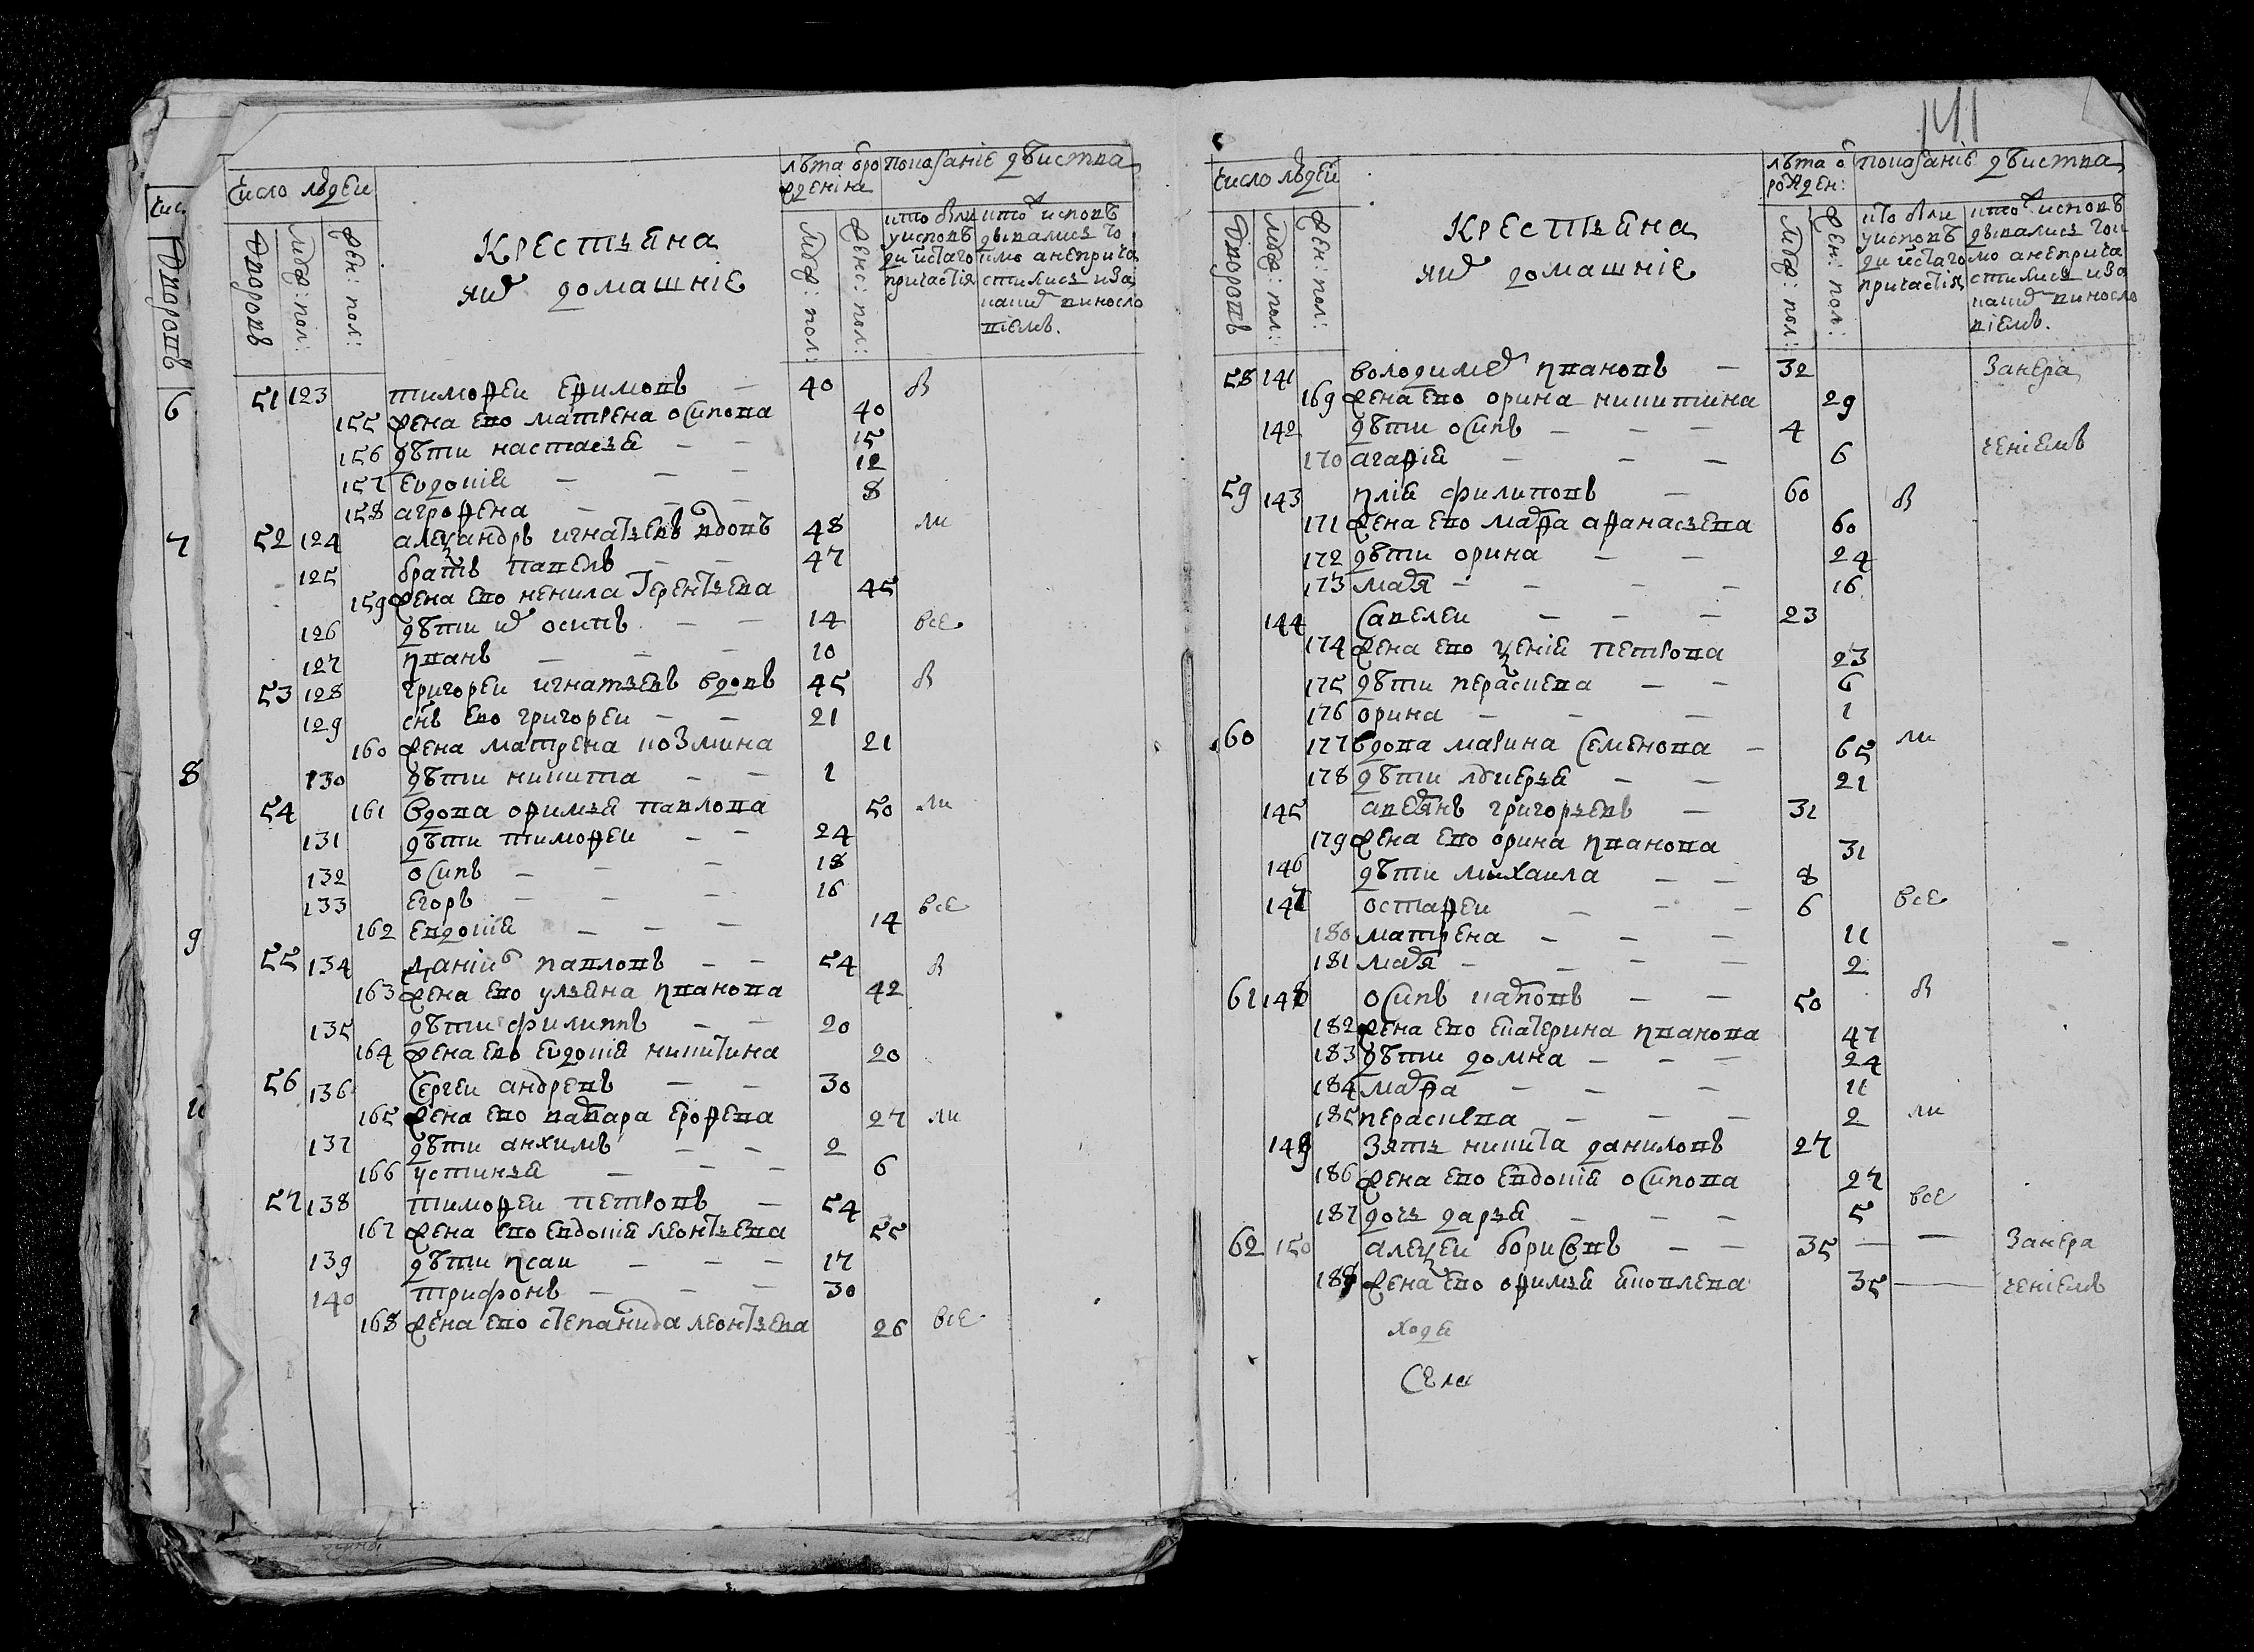 141
число людей
лѣта ѿ ро
жденіиа
показаніе дѣиства
дворовъ
муж: пол:
жен: пол:
крестьяна
ихъ домашніе
муж: пол:
женс: пол:
кто были
у исповѣ
ди и стаго
причастія
кто исповѣ
дывались то
кмо а не прича
стились и за
каким виносло
віемъ.
51 123 тимофеи ефимовъ — 40 в
155 жена ево матрена осипова 40
156 дѣти настасья — — 15
157 евдокия — — — 12
158 агрофена — — — 8
52 124 александръ игнатьевъ вдовъ 48 ли
125 братъ павелъ — — 47
159 жена ево ненила терентьева 45
126 дѣти их осипъ — — 14 все
127 иванъ — — — 10
53 128 григореи игнатьевъ вдовъ 45 в
129 снъ ево григореи — — 21
160 жена матрена козмина 21
130 дѣти никита — — 1
54 161 вдова офимья павлова 50 ли
131 дѣти тимофеи — — 24
132 осипъ — — — 18
133 егоръ — — — 16 все
162 евдокия — — — 14
55 134 данило павловъ — — 54 в
163 жена ево ульяна иванова 42
135 дѣти филиппъ — — 20
164 жена ево евдокия никитина 20
56 136 сергеи андревъ — — 30
165 жена ево варвара ерофева 27 ли
137 дѣти анхимъ — — 2
166 устинья — — — 6
57 138 тимофеи петровъ — 54
167 жена ево евдокия леонтьева 55
139 дѣти исаи — — — 17
140 трифонъ — — — 30
168 жена ево степанида леонтьева 26 все
число людей
лѣта ѿ
рожден:
показаніе дѣиства
дворовъ
муж: пол:
жен: пол:
крестьяна
ихъ домашніе
муж: пол:
жен: пол:
кто были
у исповѣ
ди и стаго
причастія
кто исповѣ
дывались ток
мо а не прича
стились и за
каким виносло
віемъ.
58 141 володимер ивановъ — 32 за нера
169 жена ево орина никитина 29
142 дѣти осипъ — — — 4
170 агафия — — — 6 ченіемъ
59 143 илия филиповъ — 60 в
171 жена ево марфа афанасьева 60
172 дѣти орина — — 24
173 маря — — — — 16
144 савелеи — — — 23
174 жена ево ксения петрова 23
175 дѣти перасковя — — 6
176 орина — — — 1
60 177 вдова марина семенова — 65 ли
178 дѣти лукерья — — 21
145 аведянъ григорьевъ — 31
179 жена ево орина иванова 31
146 дѣти михаила — — 8
147 остафеи — — — 6 все
180 матрена — — — 11
181 маря — — — — 2
61 148 осипъ карповъ — — 50 в
182 жена ево екатерина иванова 47
183 дѣти домна — — — 24
184 марфа — — — 11
185 перасковя — — — 2 ли
149 зять никита даниловъ 27
186 жена ево евдокия осипова 27
187 дочь дарья — — — 5 все
62 150 алексеи борисовъ — — 35 — — за нера
188 жена ево офимья яковлева 35 — ченіемъ
села